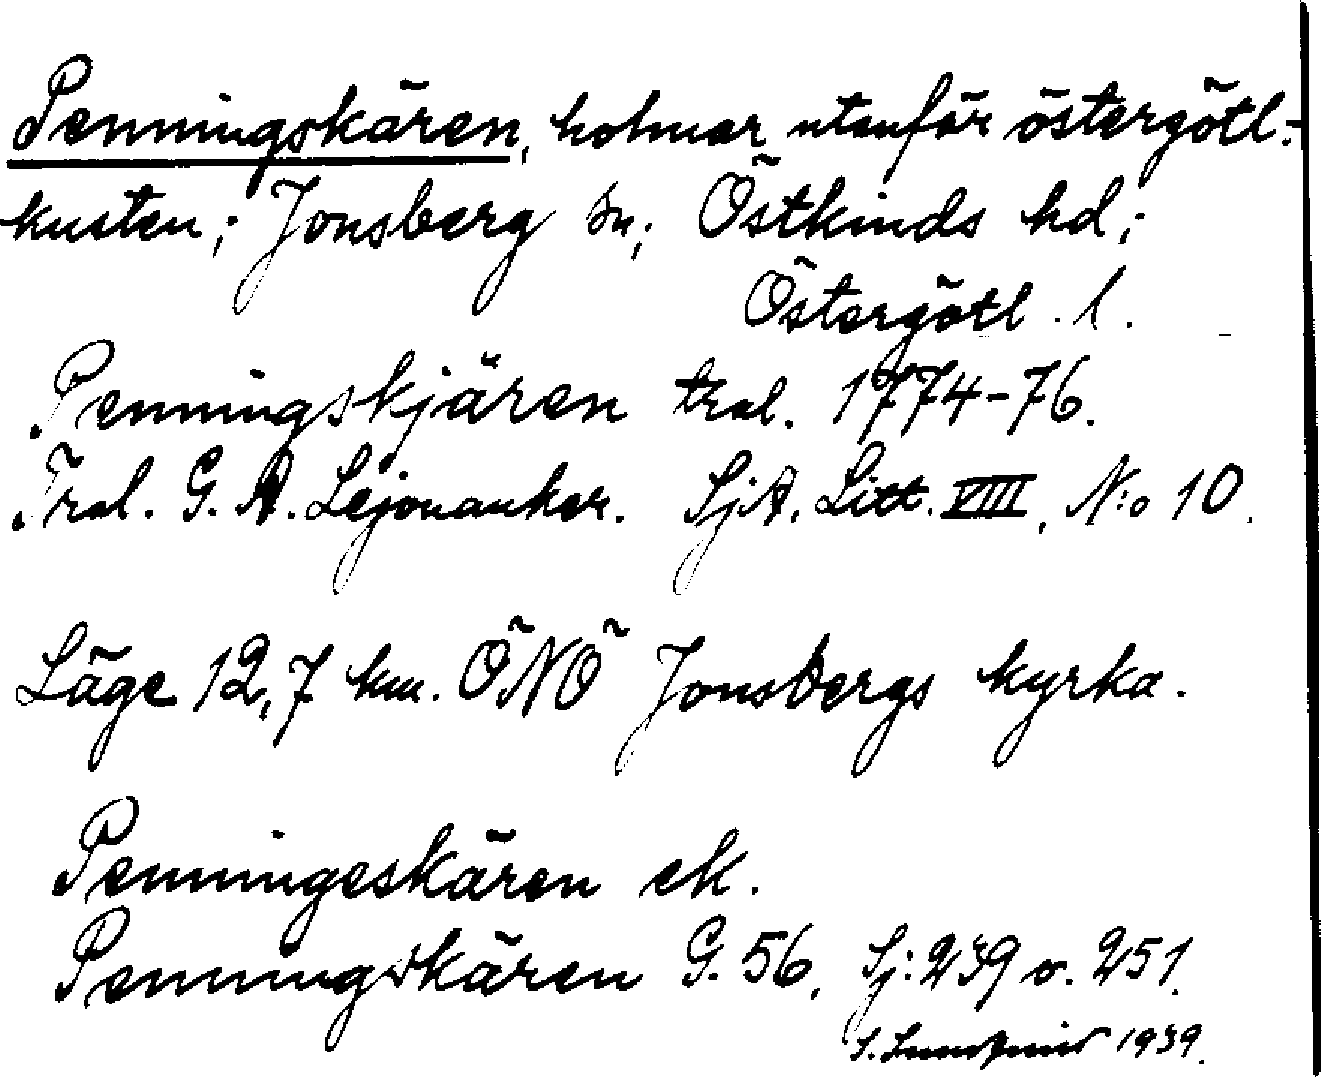 Penningskären, holmar utanför östergötl.-
kusten; Jonsberg sn; Östkinds hd;
Östergötl. l.
Penningskjären tral. 1774-76.
Tral. G. A. Lejonanker. SjA. Litt. VIII, N:o 10.
Läge 12,7 km. ÖNÖ Jonsbergs kyrka.
Penningeskären ek.
Penningskären G. 56, Sj: 239 o. 251.
S. 1939.